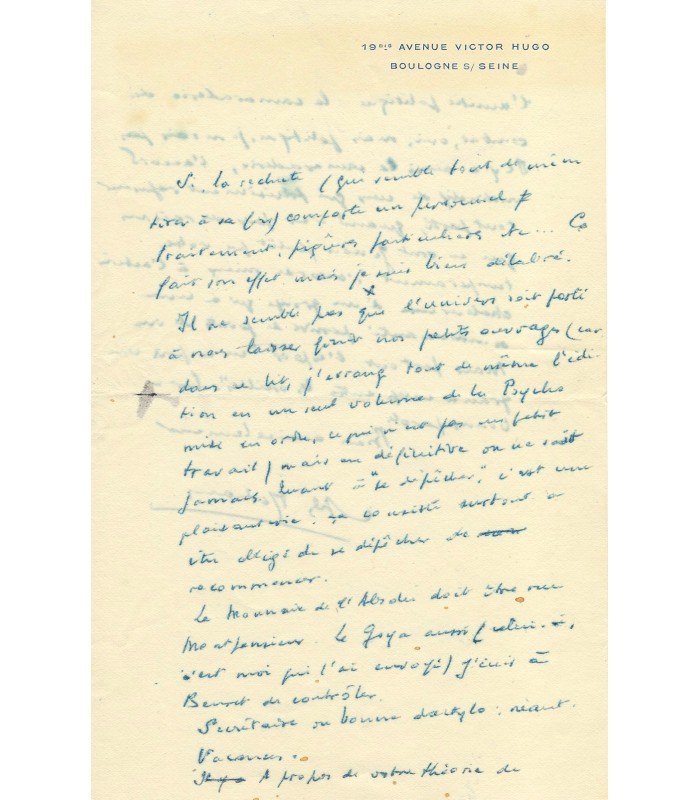 19 BIS AVENUE VICTOR HUGO
BOULOGNE S/ SEINE
Si, la rechute (qui semble tout de même
tirer à sa fin) comporte un
traitement, piqûres particulières etc... Ça
fait son effet mais je suis bien délabré.
Il ne semble pas que l'univers soit porté
à nous laisser finir nos petits ouvrages (car
dans ce lit, j'arrange tout de même l'édi-
tion en un seul volume de la Psycho
mise en ordre, ce qui n'est pas un petit
travail) mais en définitive on ne sait
jamais. Quant à "se dépêcher", c'est une
plaisanterie : ça consiste surtout à
être obligé de se dépêcher de
recommencer.
La Monnaie de l'Absolu doit être rue
Montpensier. Le Goya aussi (celui-là,
c'est moi qui l'ai envoyé) J'écris à
de contrôler.
Secrétaire ou bonne dactylo : néant.
Vacances.
A propos de votre théorie de